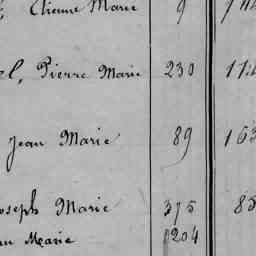 Etienne Marie 9
el, Pierre Marie 230
Jean Marie 89 163
Joseph Marie 375 85
Marie 1204